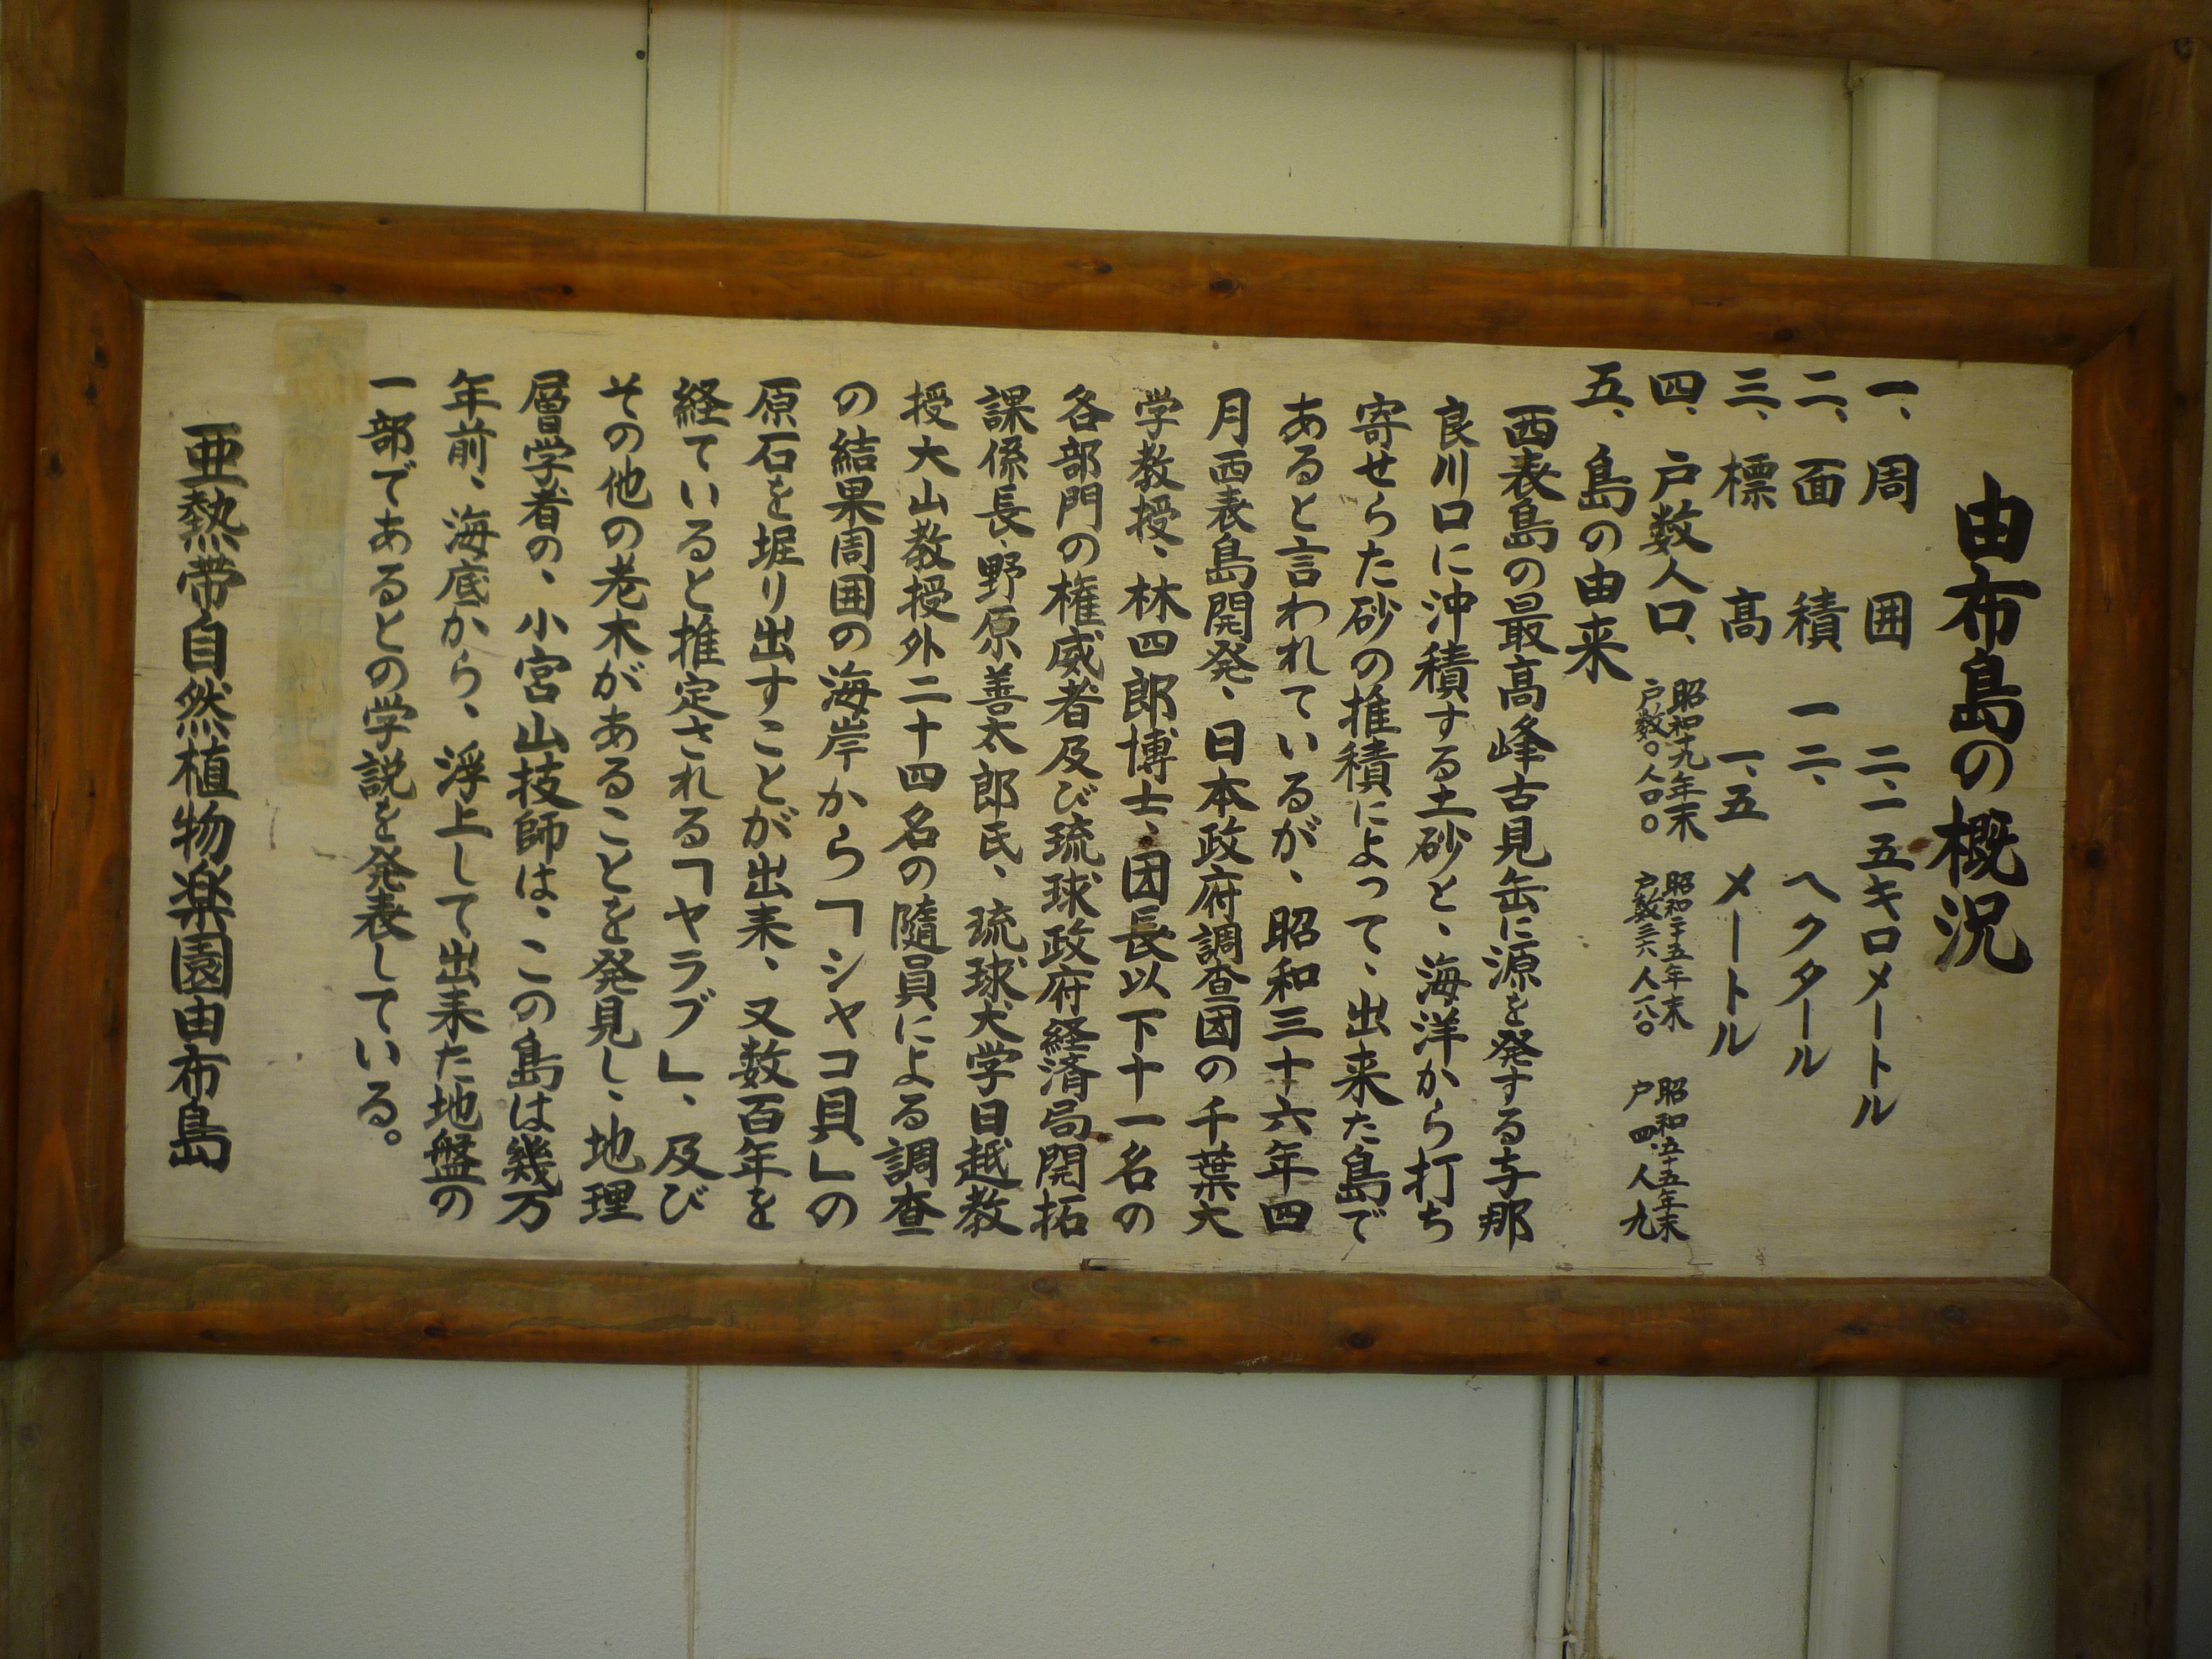 由布島の概況
一、周囲 二、一五キロメートル
二、面積 一二、ヘクタール
三、標高 一、五メートル
四、戸数人口、
昭和十九年末
戸数〇人口〇
昭和二十五年末
昭和五十五年末
戸四、人九
五、島の由来
西表島の最高峰古見岳に源を発する与那
良川口に沖積する土砂と、海洋から打ち
寄せらた砂の推積によって、出来た島で
あると言われているが、昭和三十六年四
月西表島開発、日本政府調査団の千葉大
学教授、林四郎博士、団長以下十一名の
各部門の権威者及び琉球政府経済局開拓
課係長、野原善太郎氏、琉球大学日越教
授大山教授外二十四名の随員による調査
の結果周囲の海岸から「シャコ貝」の
原石を堀り出すことが出来、又数百年を
経ていると推定される「ヤラブ」、及び
その他の老木があることを発見し、地理
層学者の、小宮山技師は、この島は幾万
年前、海底から、浮上して出来た地盤の
一部であるとの学説を発表している。
亜熱帯自然植物楽園由布島